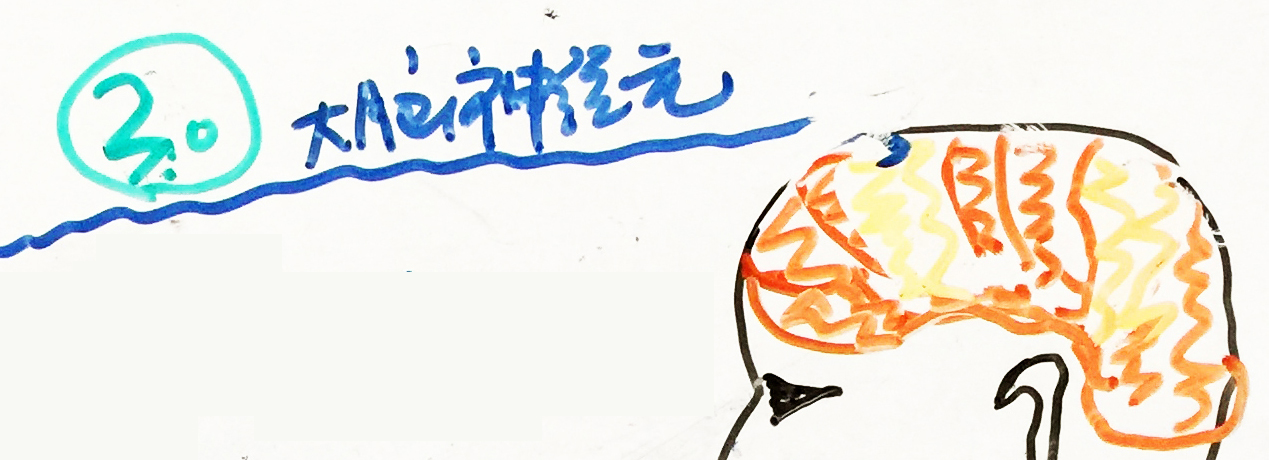 3.0
大脑神经元